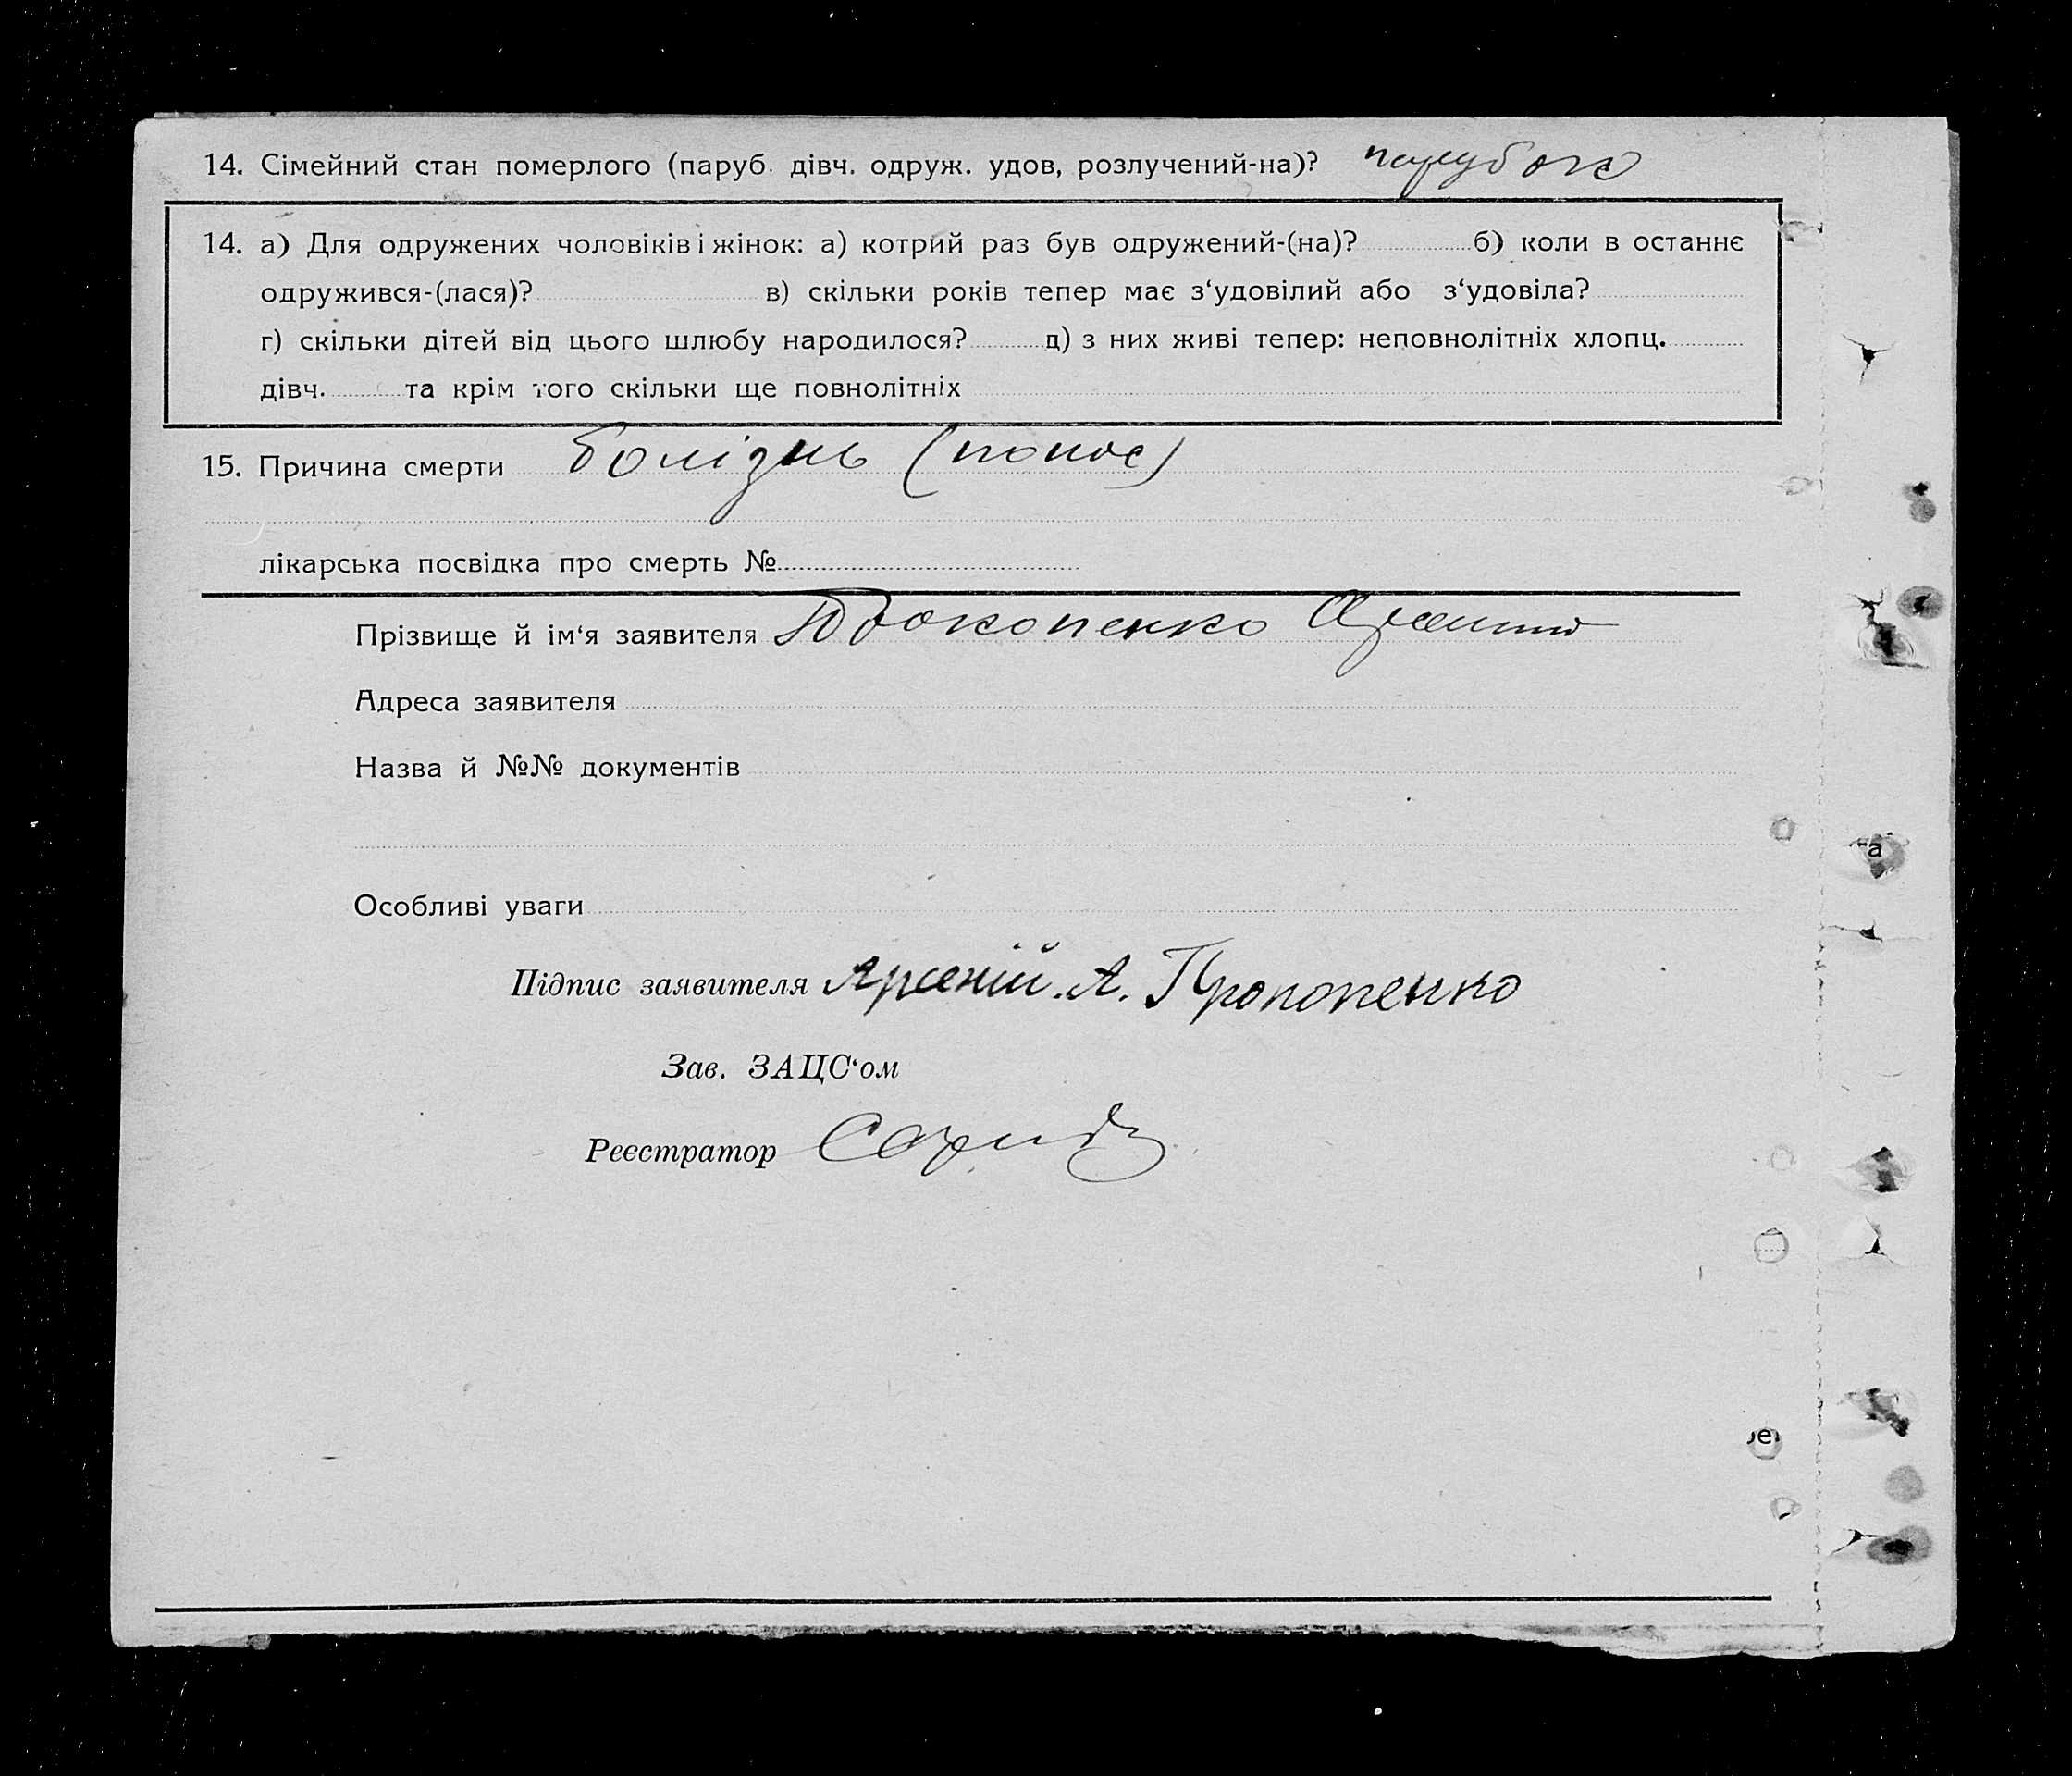 14. Сімейний стан померлого (паруб. дівч. одруж. удов, розлучений-на)? парубок
14. а) Для одружених чоловіків і жінок: а) котрий раз був одружений-(на)? б) коли в останнє
одружився-(лася)? в) скільки років тепер має з‘удовілий або з‘удовіла?
г) скільки дітей від цього шлюбу народилося? д) з них живі тепер: неповнолітніх хлопц.
дівч. та крім того скільки ще повнолітніх
15. Причина смерти болізнь (понос)
лікарська посвідка про смерть №
Прізвище й ім‘я заявителя Прокопенко
Адреса заявителя
Назва й №№ документів
Особливі уваги
Підпис заявителя Арсеній. А. Прокопенко
Зав. ЗАЦС‘ом
Реєстратор